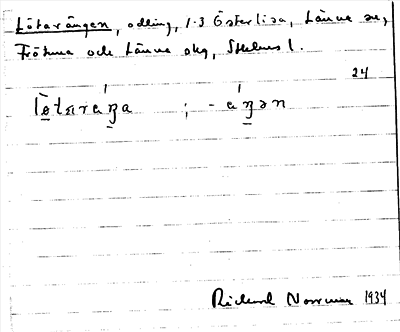 Lötarängen, odling, 1:3 Österlisa, Länna sn,
Frötuna och Länna skg, Sthlms l.
24
lötaraŋa ; - aŋən
Rickard Norrman 1934